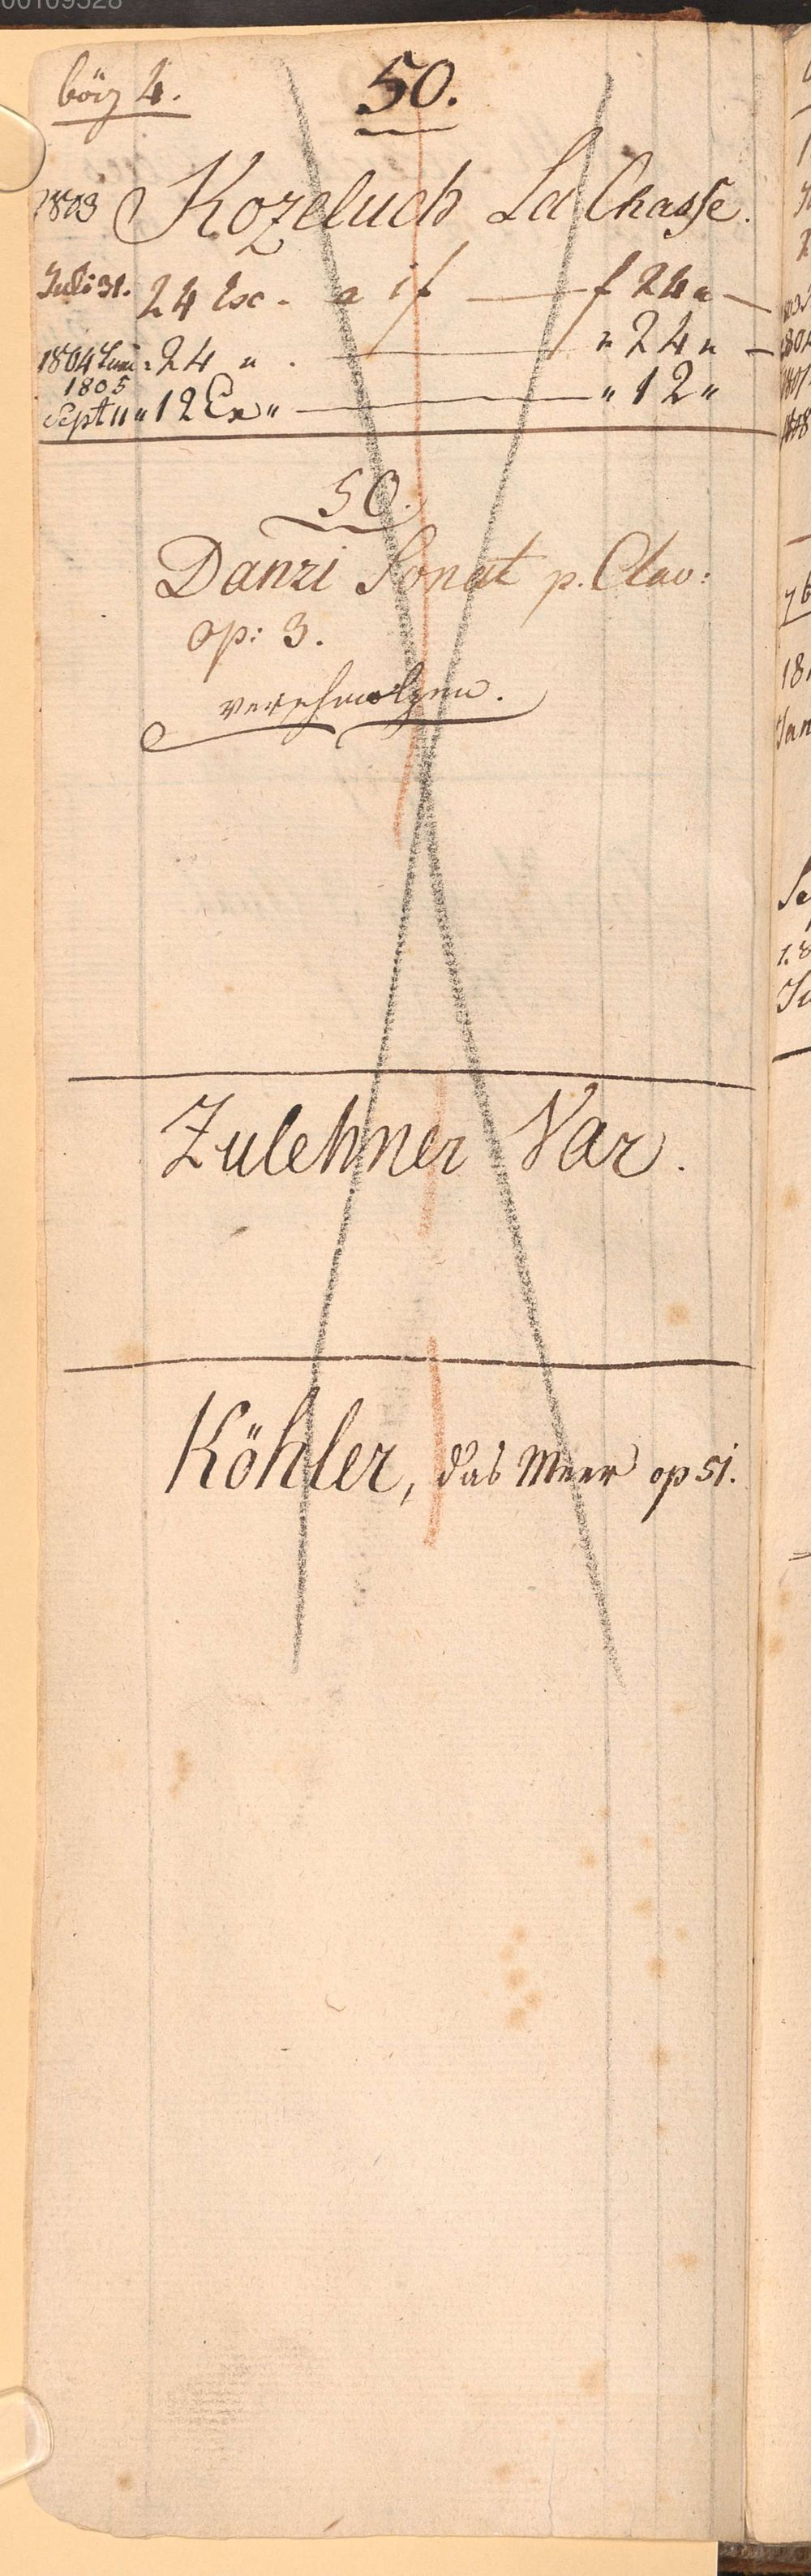 00109528
bög 4. 50.
1803 Kozeluch La Chasse.
Juli 31. 24 Exc. a 1f — f 24 "
1804 Juni " 24 " . — " 24 "
1805
Sept 11 " 12 Ex " — " 12 "
50.
Danzi Sonat p. Clav:
op: 3.
verschmolzen.
Zulehner Var.
Köhler, das Meer op 51.